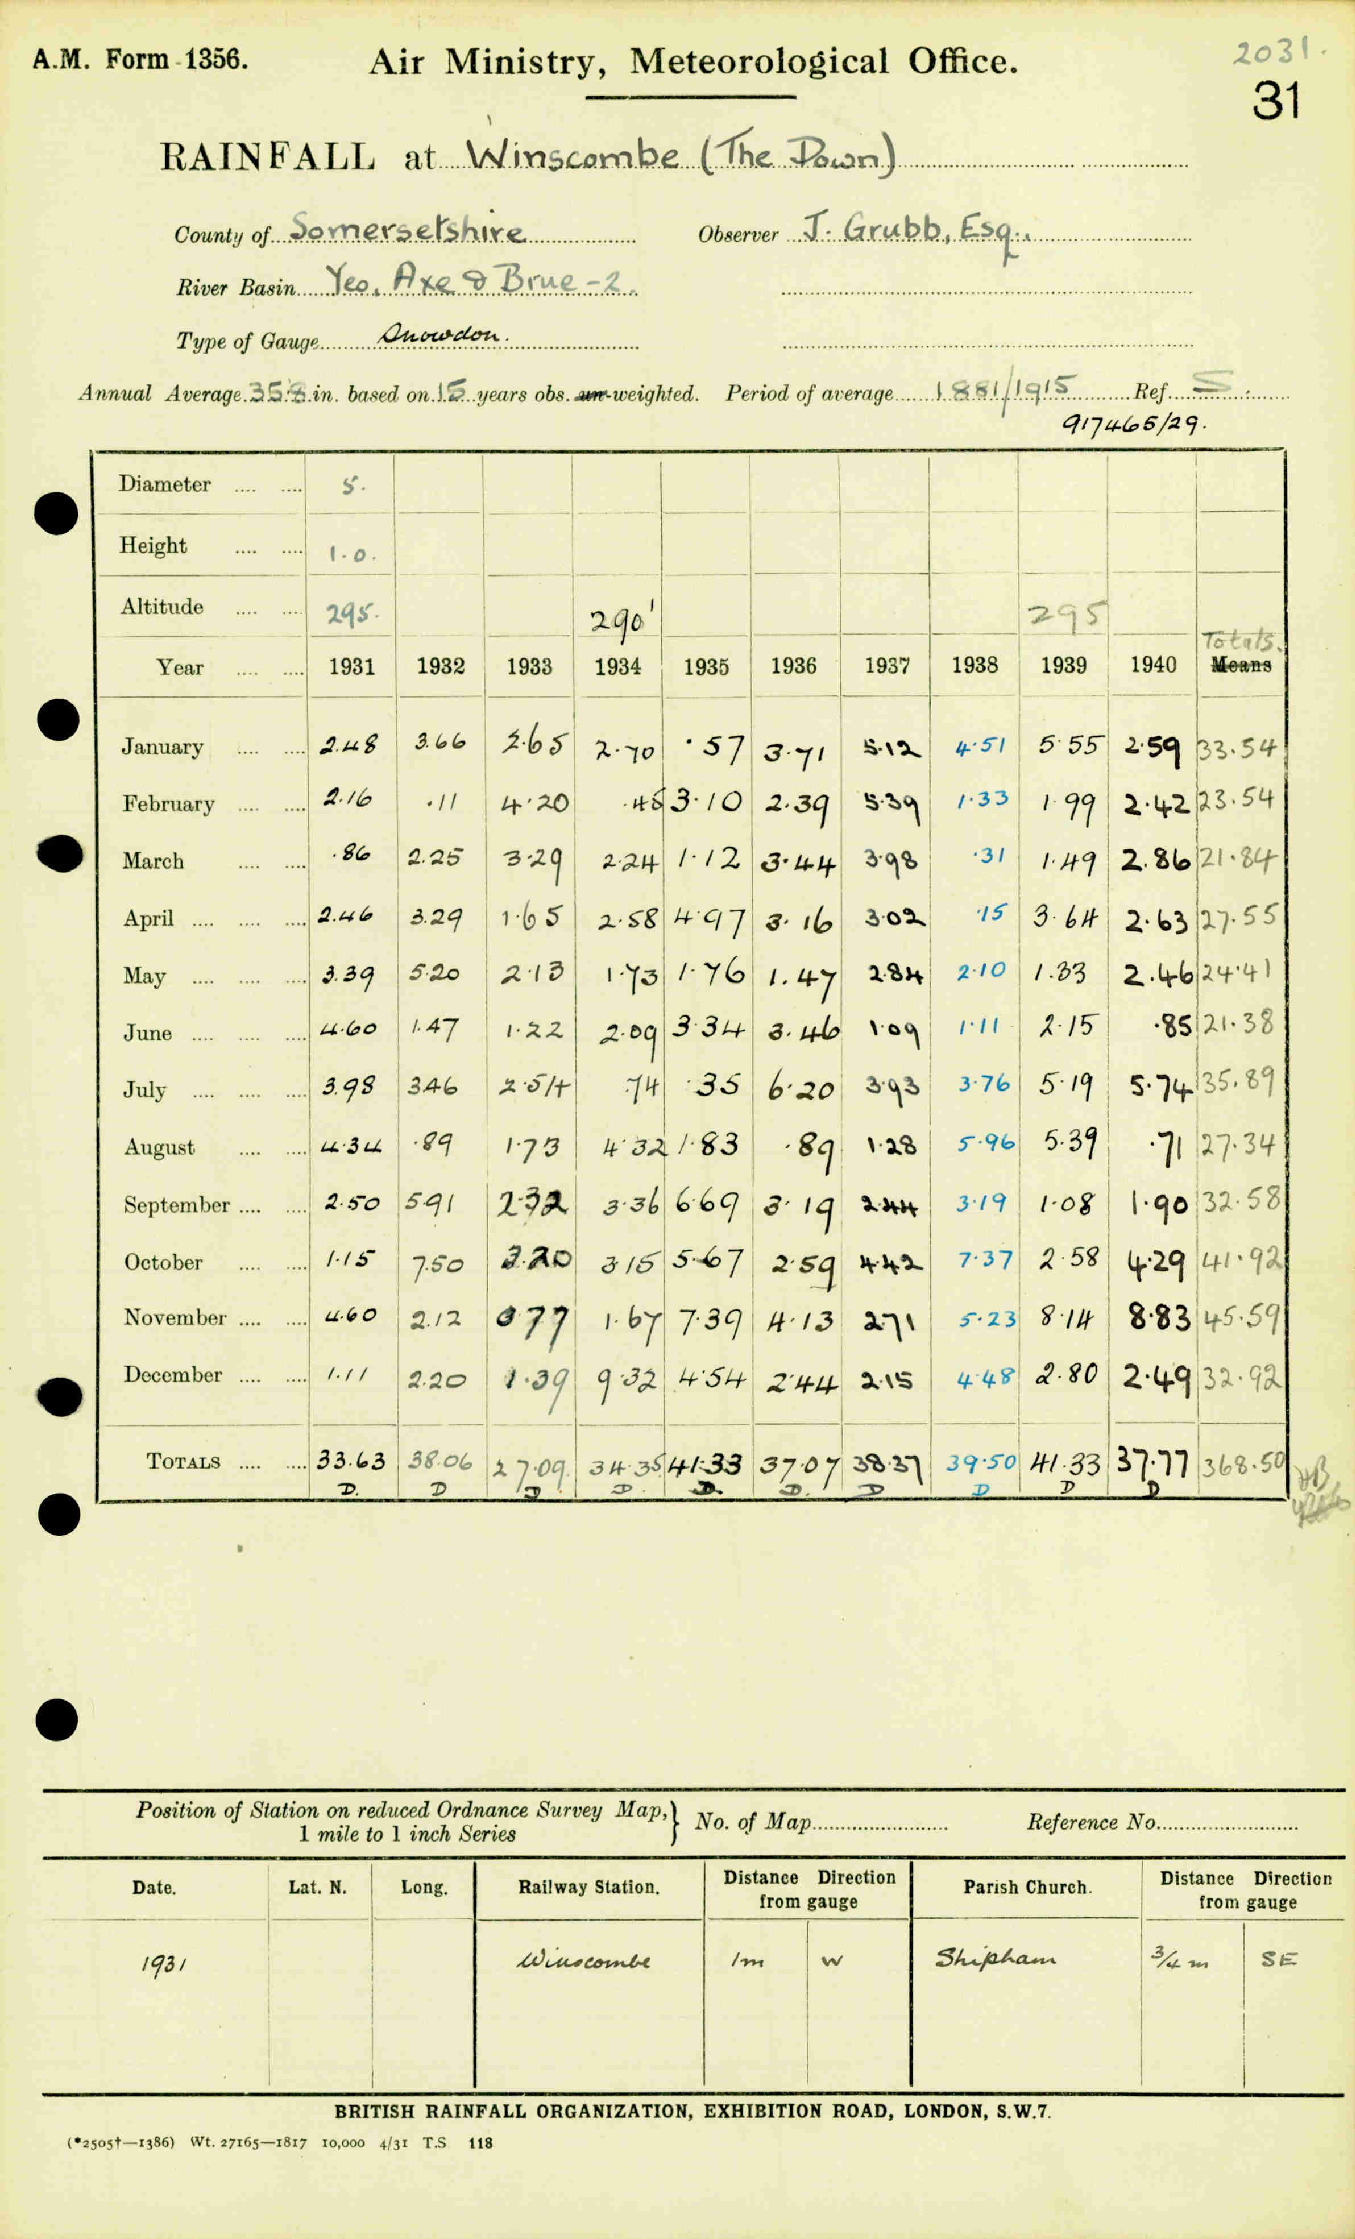 A.M. Form 1356. Air Ministry, Meteorological Office. 2031.
31
RAINFALL at Winscombe (The Down)
County of Somersetshire Observer J. Grubb, Esq.,
River Basin Yeo, Axe & Brue -2.
Type of Gauge Snowdon.
Annual Average 35.8 in. based on 15 years obs. un-weighted. Period of average 1881/1915 Ref. S.
917465/29.
Diameter .... .... 5.
Height .... .... 1.0.
Altitude .... .... 295. 290' 295
Totals.
Year .... .... 1931 1932 1933 1934 1935 1936 1937 1938 1939 1940 Means
January .... .... 2.48 3.66 2.65 2.70 .57 3.71 5.12 4.51 5.55 2.59 33.54
February .... .... 2.16 .11 4.20 .45 3.10 2.39 5.39 1.33 1.99 2.42 23.54
March .... .... .86 2.25 3.29 2.24 1.12 3.44 3.98 .31 1.49 2.86 21.84
April .... .... .... 2.46 3.29 1.65 2.58 4.97 3.16 3.02 .15 3.64 2.63 27.55
May .... .... .... 3.39 5.20 2.13 1.73 1.76 1.47 2.84 2.10 1.33 2.46 24.41
June .... .... .... 4.60 1.47 1.22 2.09 3.34 3.46 1.09 1.11 2.15 .85 21.38
July .... .... .... 3.98 3.46 2.54 .74 .35 6.20 3.93 3.76 5.19 5.74 35.89
August .... .... 4.34 .89 1.73 4.32 1.83 .89 1.28 5.96 5.39 .71 27.34
September .... .... 2.50 5.91 2.32 3.36 6.69 3.19 2.44 3.19 1.08 1.90 32.58
October .... .... 1.15 7.50 3.20 3.15 5.67 2.59 4.42 7.37 2.58 4.29 41.92
November .... .... 4.60 2.12 0.77 1.67 7.39 4.13 2.71 5.23 8.14 8.83 45.59
December .... .... 1.11 2.20 1.39 9.32 4.54 2.44 2.15 4.48 2.80 2.49 32.92
TOTALS .... .... 33.63 38.06 27.09 34.35 41.33 37.07 38.37 39.50 41.33 37.77 368.50
D. D D D. D. D. D D D D
Position of Station on reduced Ordnance Survey Map,} No. of Map Reference No.
1 mile to 1 inch Series
Date. Lat. N. Long. Railway Station. Distance Direction from gauge Parish Church. Distance Direction from gauge
1931 Winscombe 1m W Shipham 3/4 m SE
BRITISH RAINFALL ORGANIZATION, EXHIBITION ROAD, LONDON, S.W.7.
(*2505†—1386) Wt. 27165—1817 10,000 4/31 T.S 118